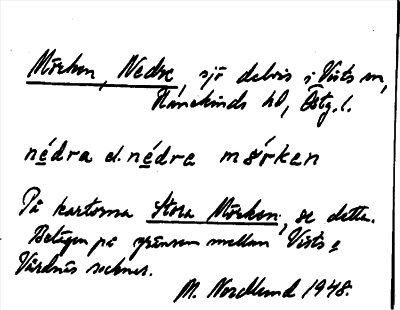 Mörken, Nedre, sjö delvis i Vists sn,
Hanekinds hd, Östg. l.
nédra el. nèdra mörken
På kartorna Stora Mörken, se detta.
Belägen på gränsen mellan Vists o
Vårdnäs socknar.
M. Nordlund 1948.